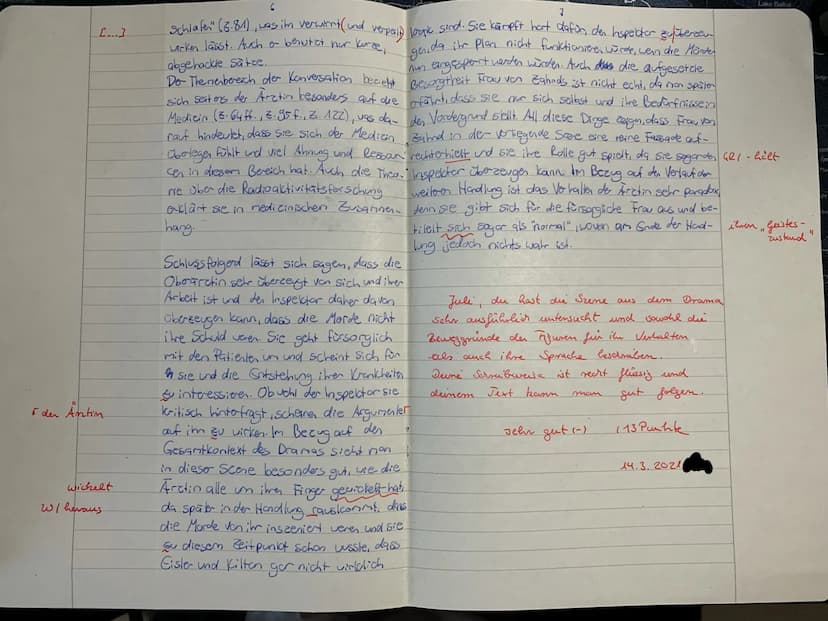 6
[...]
schlafen" (Z.81), was ihn verwirrt (und verpeilt)
wirken lässt. Auch er benutzt nur kurze,
abgehackte Sätze.
Der Themenbereich der Konversation bezieht
sich seitens der Ärztin besonders auf die
Medizin (Z.64ff., Z.95f., Z.122), was da-
rauf hindeutet, dass sie sich der Medizin
überlegen fühlt und viel Ahnung und Ressour
cen in diesem Bereich hat. Auch die Theo-
rie über die Radioaktivitätsforschung
erklärt sie in medizinischen Zusammen-
hang.
Schlussfolgernd lässt sich sagen, dass die
Oberärztin sehr überzeugt von sich und ihrer
Arbeit ist und den Inspektor daher davon
überzeugen kann, dass die Morde nicht
ihre Schuld waren. Sie geht fürsorglich
mit den Patienten um und scheint sich für
sie und die Entstehung ihrer Krankheiten
zu interessieren. Obwohl der Inspektor sie
kritisch hinterfragt, scheinen die Argumente
Γ der Ärztin
auf ihn zu wirken. Im Bezug auf den
Gesamtkontext des Dramas sieht man
in dieser Szene besonders gut, wie die
Ärztin alle um ihren Finger gewickelt hat,
wickelt
da später in der Handlung rauskommt, dass
W/ heraus
die Morde von ihr inszeniert waren und sie
zu diesem Zeitpunkt schon wusste, dass
Eisler und Kilton gar nicht wirklich
7
krank sind. Sie kämpft hart dafür, den Inspektor zu überzeu-
gen, da ihr Plan nicht funktionieren würde, wenn die Mörder
nun eingesperrt werden würden. Auch die aufgesetzte
Besorgtheit Frau von Zahnds ist nicht echt, da man später
erfährt, dass sie nur sich selbst und ihre Bedürfnisse in
den Vordergrund stellt. All diese Dinge zeigen, dass Frau von
Zahnd in der vorliegende Szene eine reine Fassade auf-
rechterhielt und sie ihre Rolle gut spielt, da sie sogar den
GR/ -hält
Inspektor überzeugen kann. Im Bezug auf den Verlauf der
weiteren Handlung ist das Verhalten der Ärztin sehr paradox,
denn sie gibt sich für die fürsorgliche Frau aus und be-
titelt sich sogar als "normal", wovon am Ende der Hand-
ihren „Geistes-
zustand"
lung jedoch nichts wahr ist.
Juli, du hast die Szene aus dem Drama
sehr ausführlich untersucht und sowohl die
Beweggründe der Figuren für ihr Verhalten
als auch ihre Sprache beschrieben.
Deine Schreibweise ist recht flüssig und
deinem Text kann man gut folgen.
sehr gut (-) (13 Punkte
14.3.2021